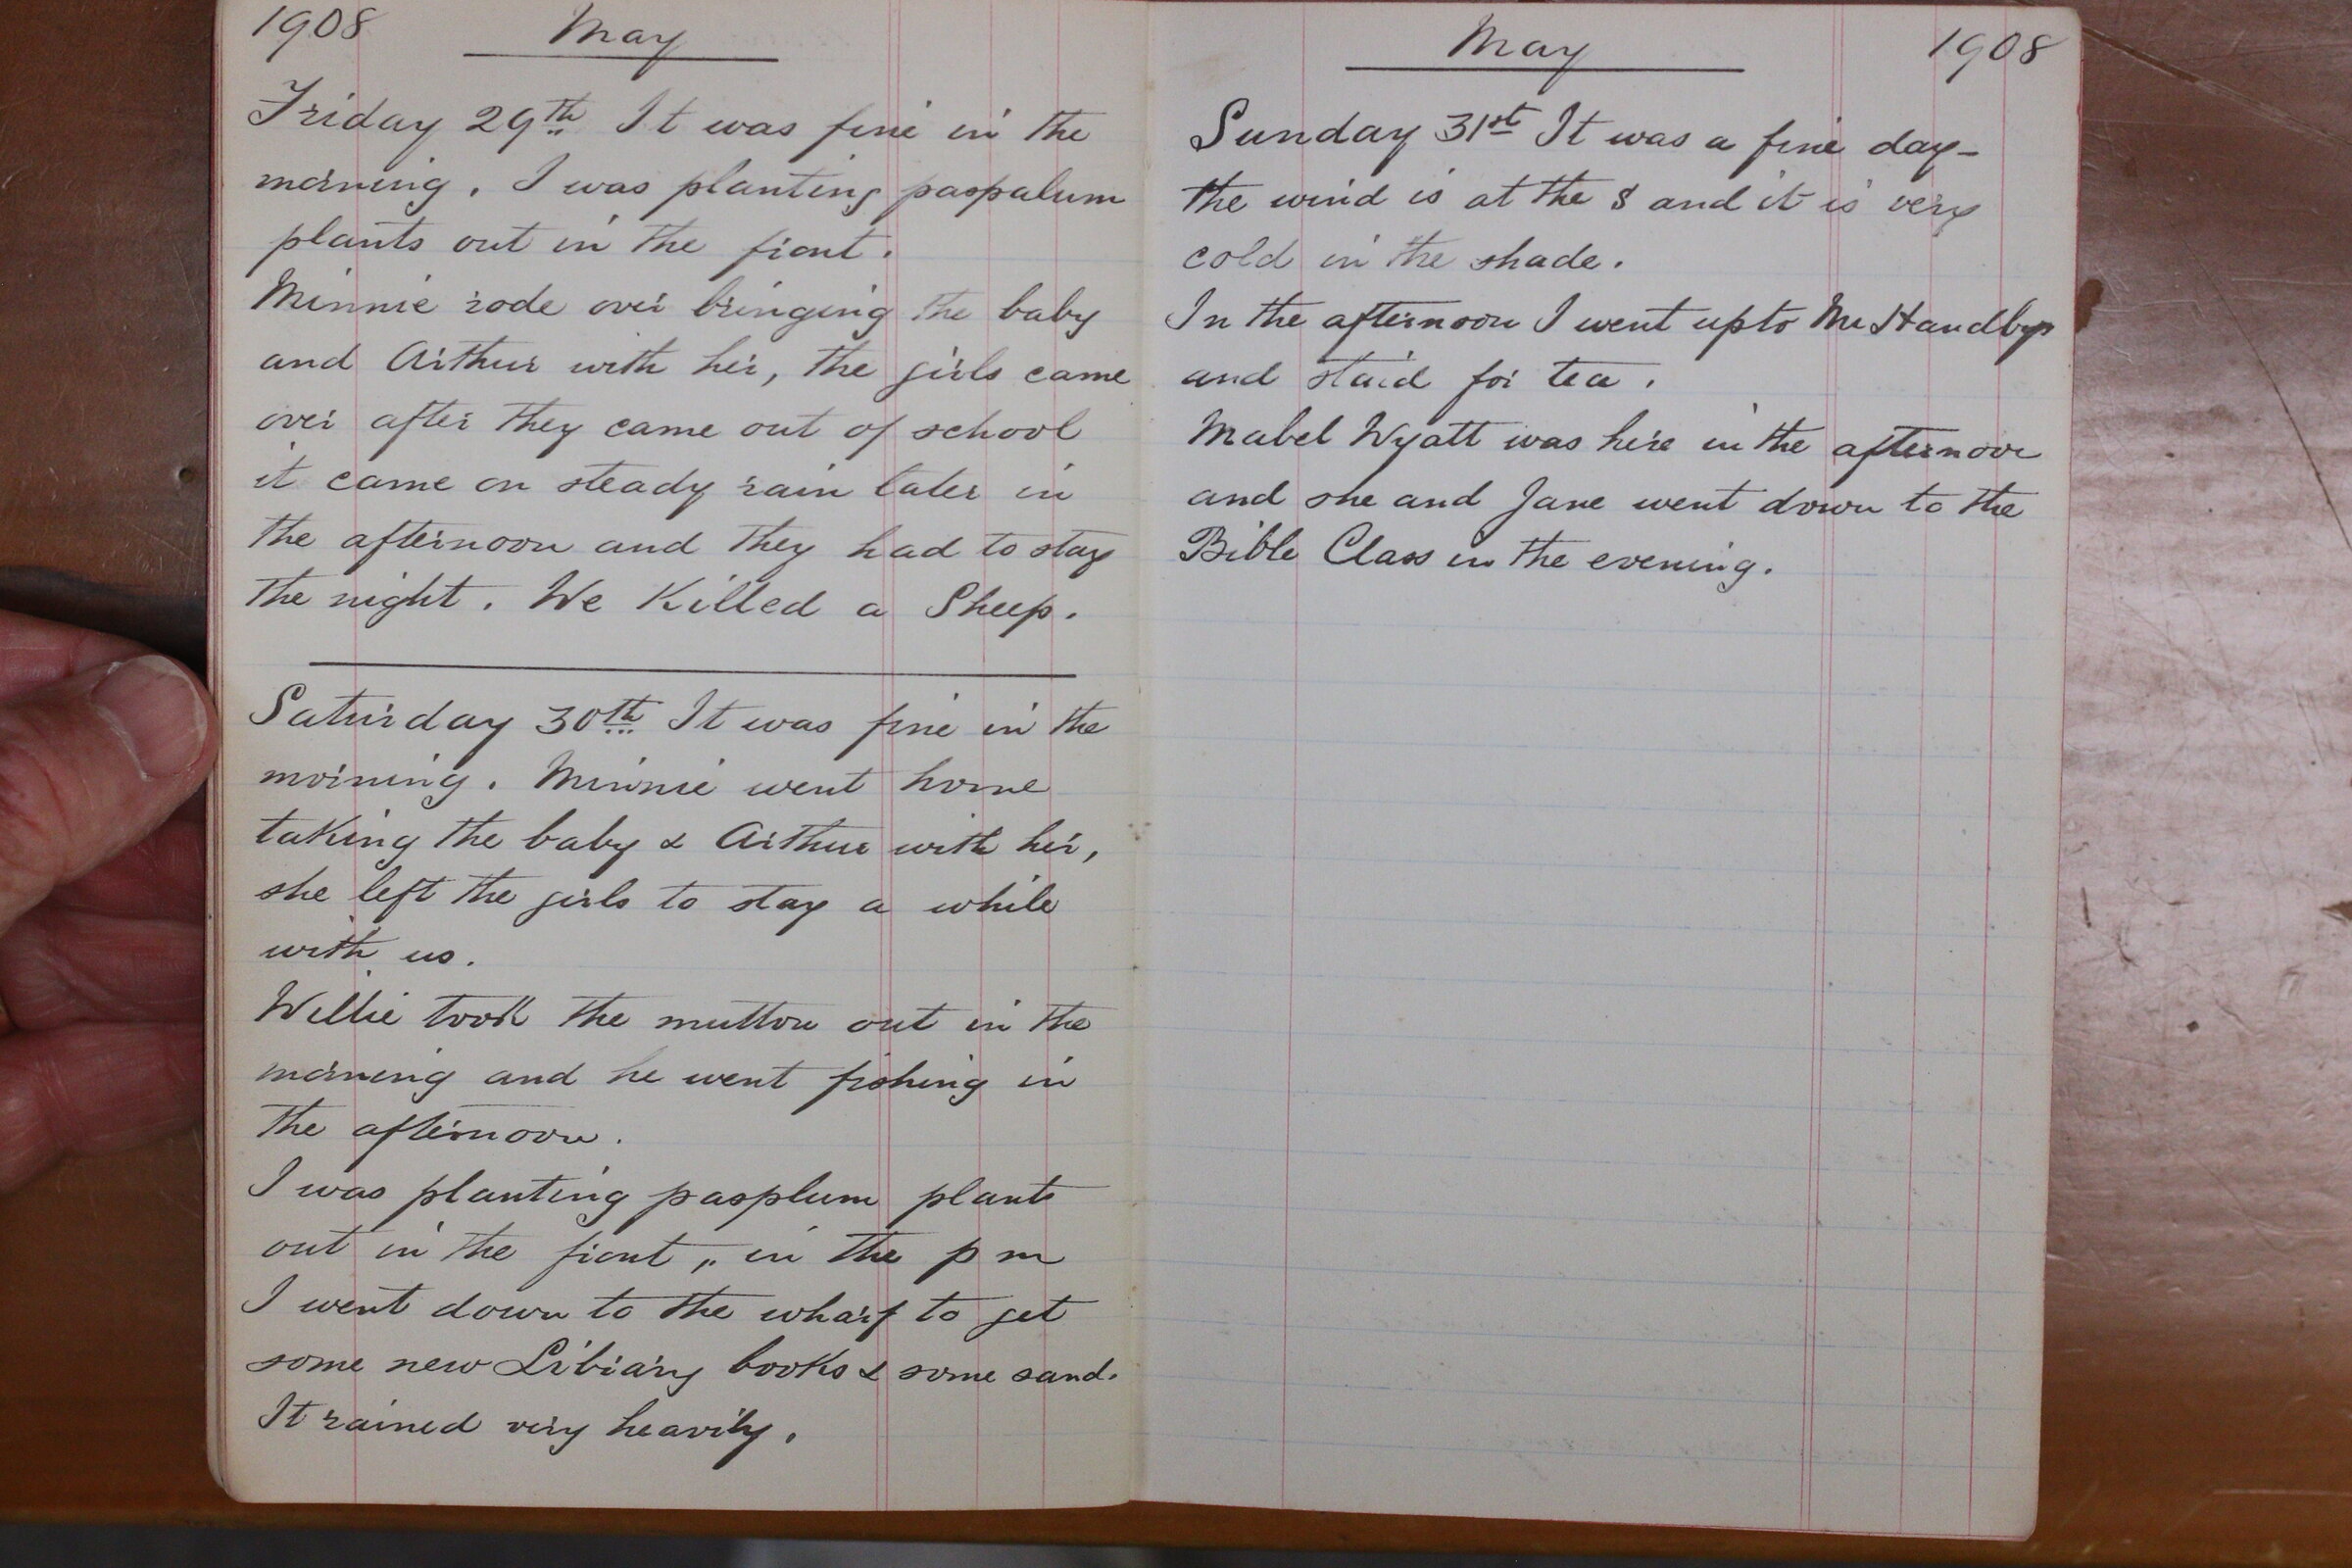 1908 May
Friday 29th It was fine in the
morning. I was planting paspalum
plants out in the front.
Minnie rode over bringing the baby
and Arthur with her, the girls came
over after they came out of school
it came on steady rain later in
the afternoon and they had to stay
the night. We Killed a Sheep.
Saturday 30th It was fine in the
morning. Minnie went home
taking the baby & Arthur with her,
she left the girls to stay a while
with us.
Willie took the mutton out in the
morning and he went fishing in
the afternoon.
I was planting pasplum plants
out in the front, in the p m
I went down to the wharf to get
some new Library books & some sand.
It rained very heavily.
May 1908
Sunday 31st It was a fine day-
the wind is at the S and it is very
cold in the shade.
In the afternoon I went up to Mr Handbys
and staid for tea.
Mabel Wyatt was here in the afternoon
and she and Jane went down to the
Bible Class in the evening.